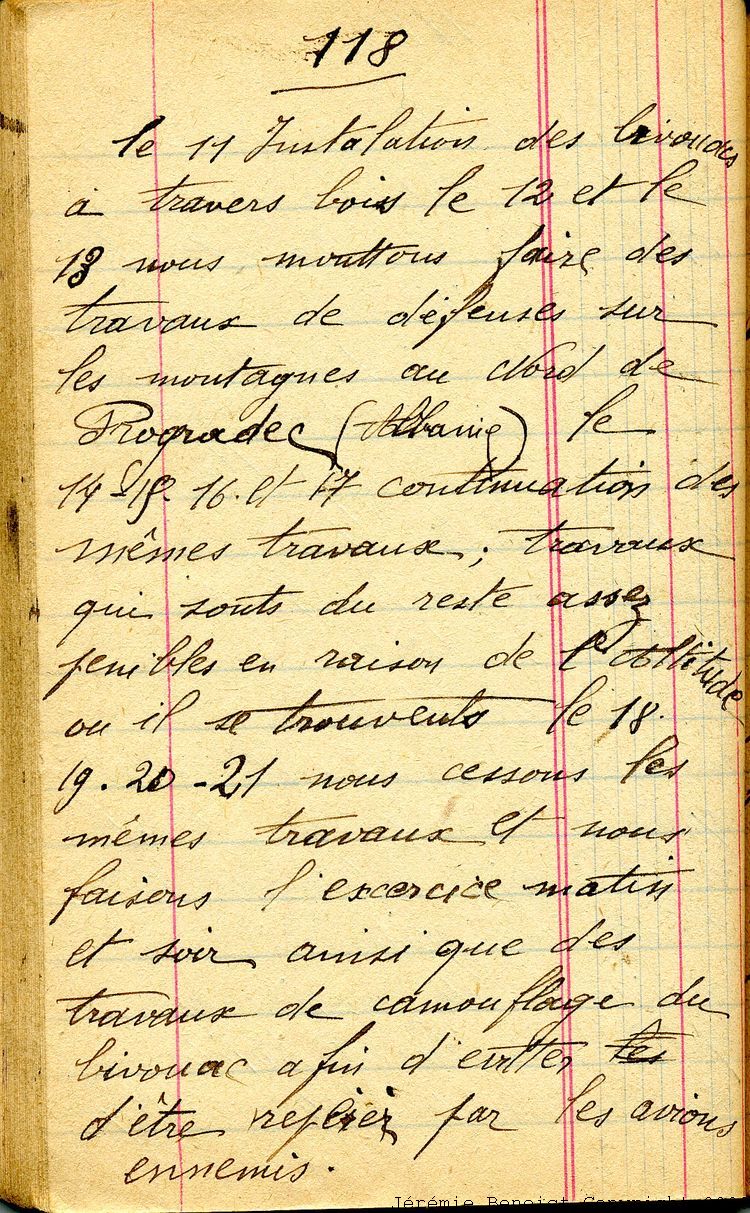 118
le 11 Instalation des bivouacs
a travers bois le 12 et le
13 nous monttons faire des
travaux de défenses sur
les montagnes au Nord de
Progradec (Albanie) le
14-15. 16. et 17 continuation des
mêmes travaux, travaux
qui sonts du reste assez
penibles en raison de l'Altitude
ou il se trouvents le 18.
19. 20 - 21 nous cessons les
mêmes travaux et nous
faisons l'excercice matin
et soir ainsi que des
travaux de camouflage du
bivouac afin d'eviter les
d'être repérer par les avions
ennemis.
Jérémie Benoist Copyright